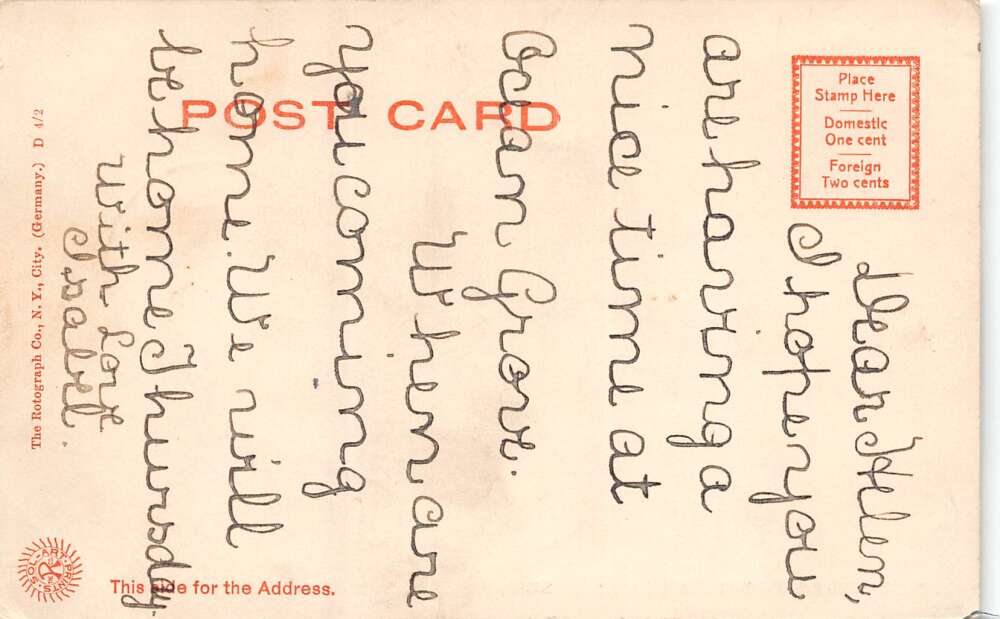 POST CARD
Place
Stamp Here
Domestic
One cent
Foreign
Two cents
Dear Helen,
I hope you
are having a
nice time at
Ocean Grove.
When are
you coming
home. We will
be home Thursday.
With Love
Isabel.
This side for the Address.
The Rotograph Co., N. Y., City. (Germany.) D 4/2
SOL-ART-PRINTS